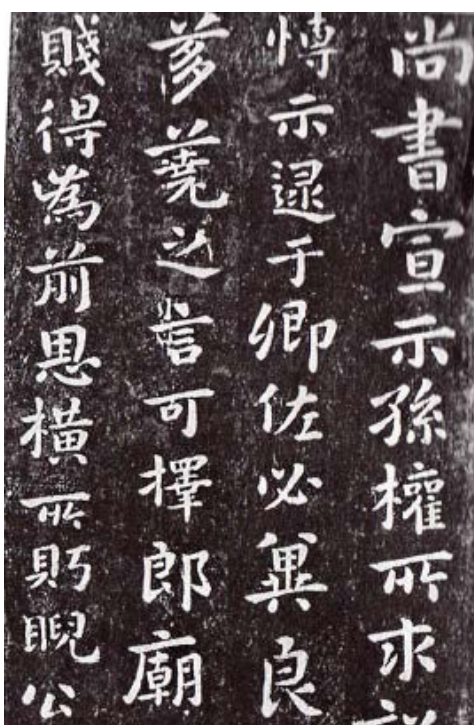 尚書宣示孫權所求
博示逮于卿佐必冀良
芻蕘之言可擇郎廟
賤得為前恩橫所眄睨公